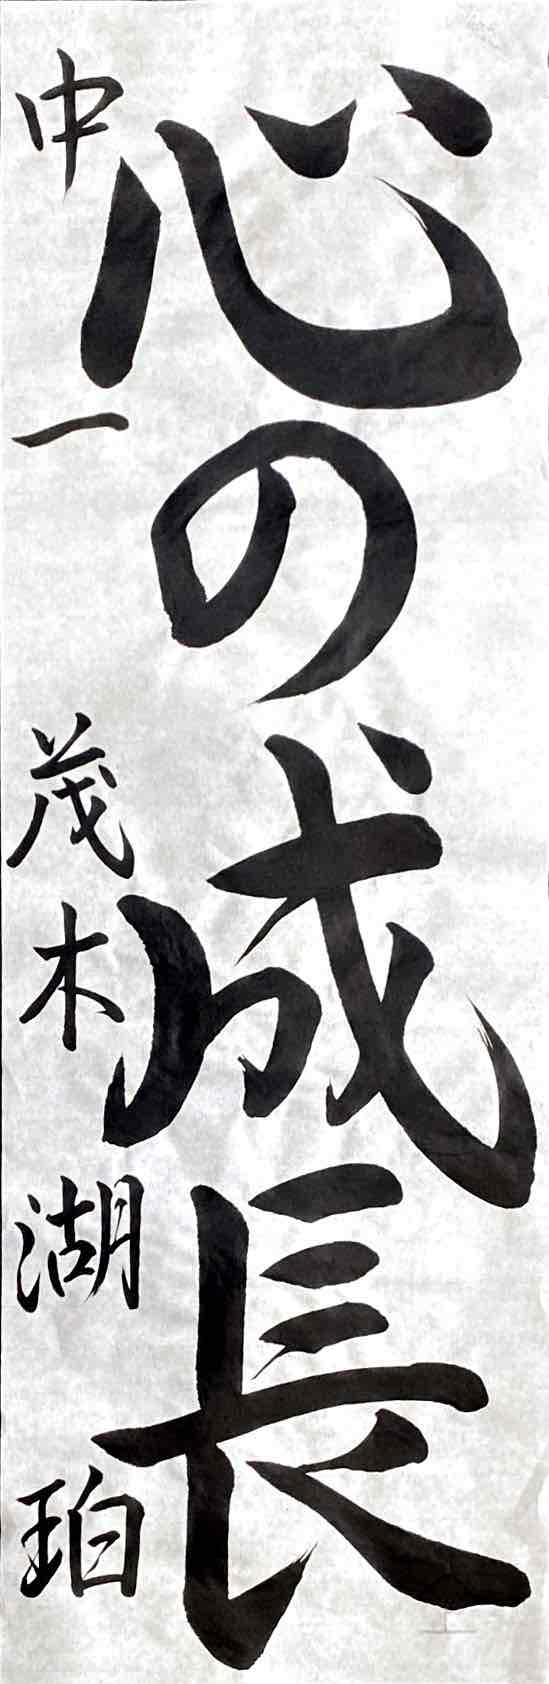 心の成長
中一 茂木湖珀